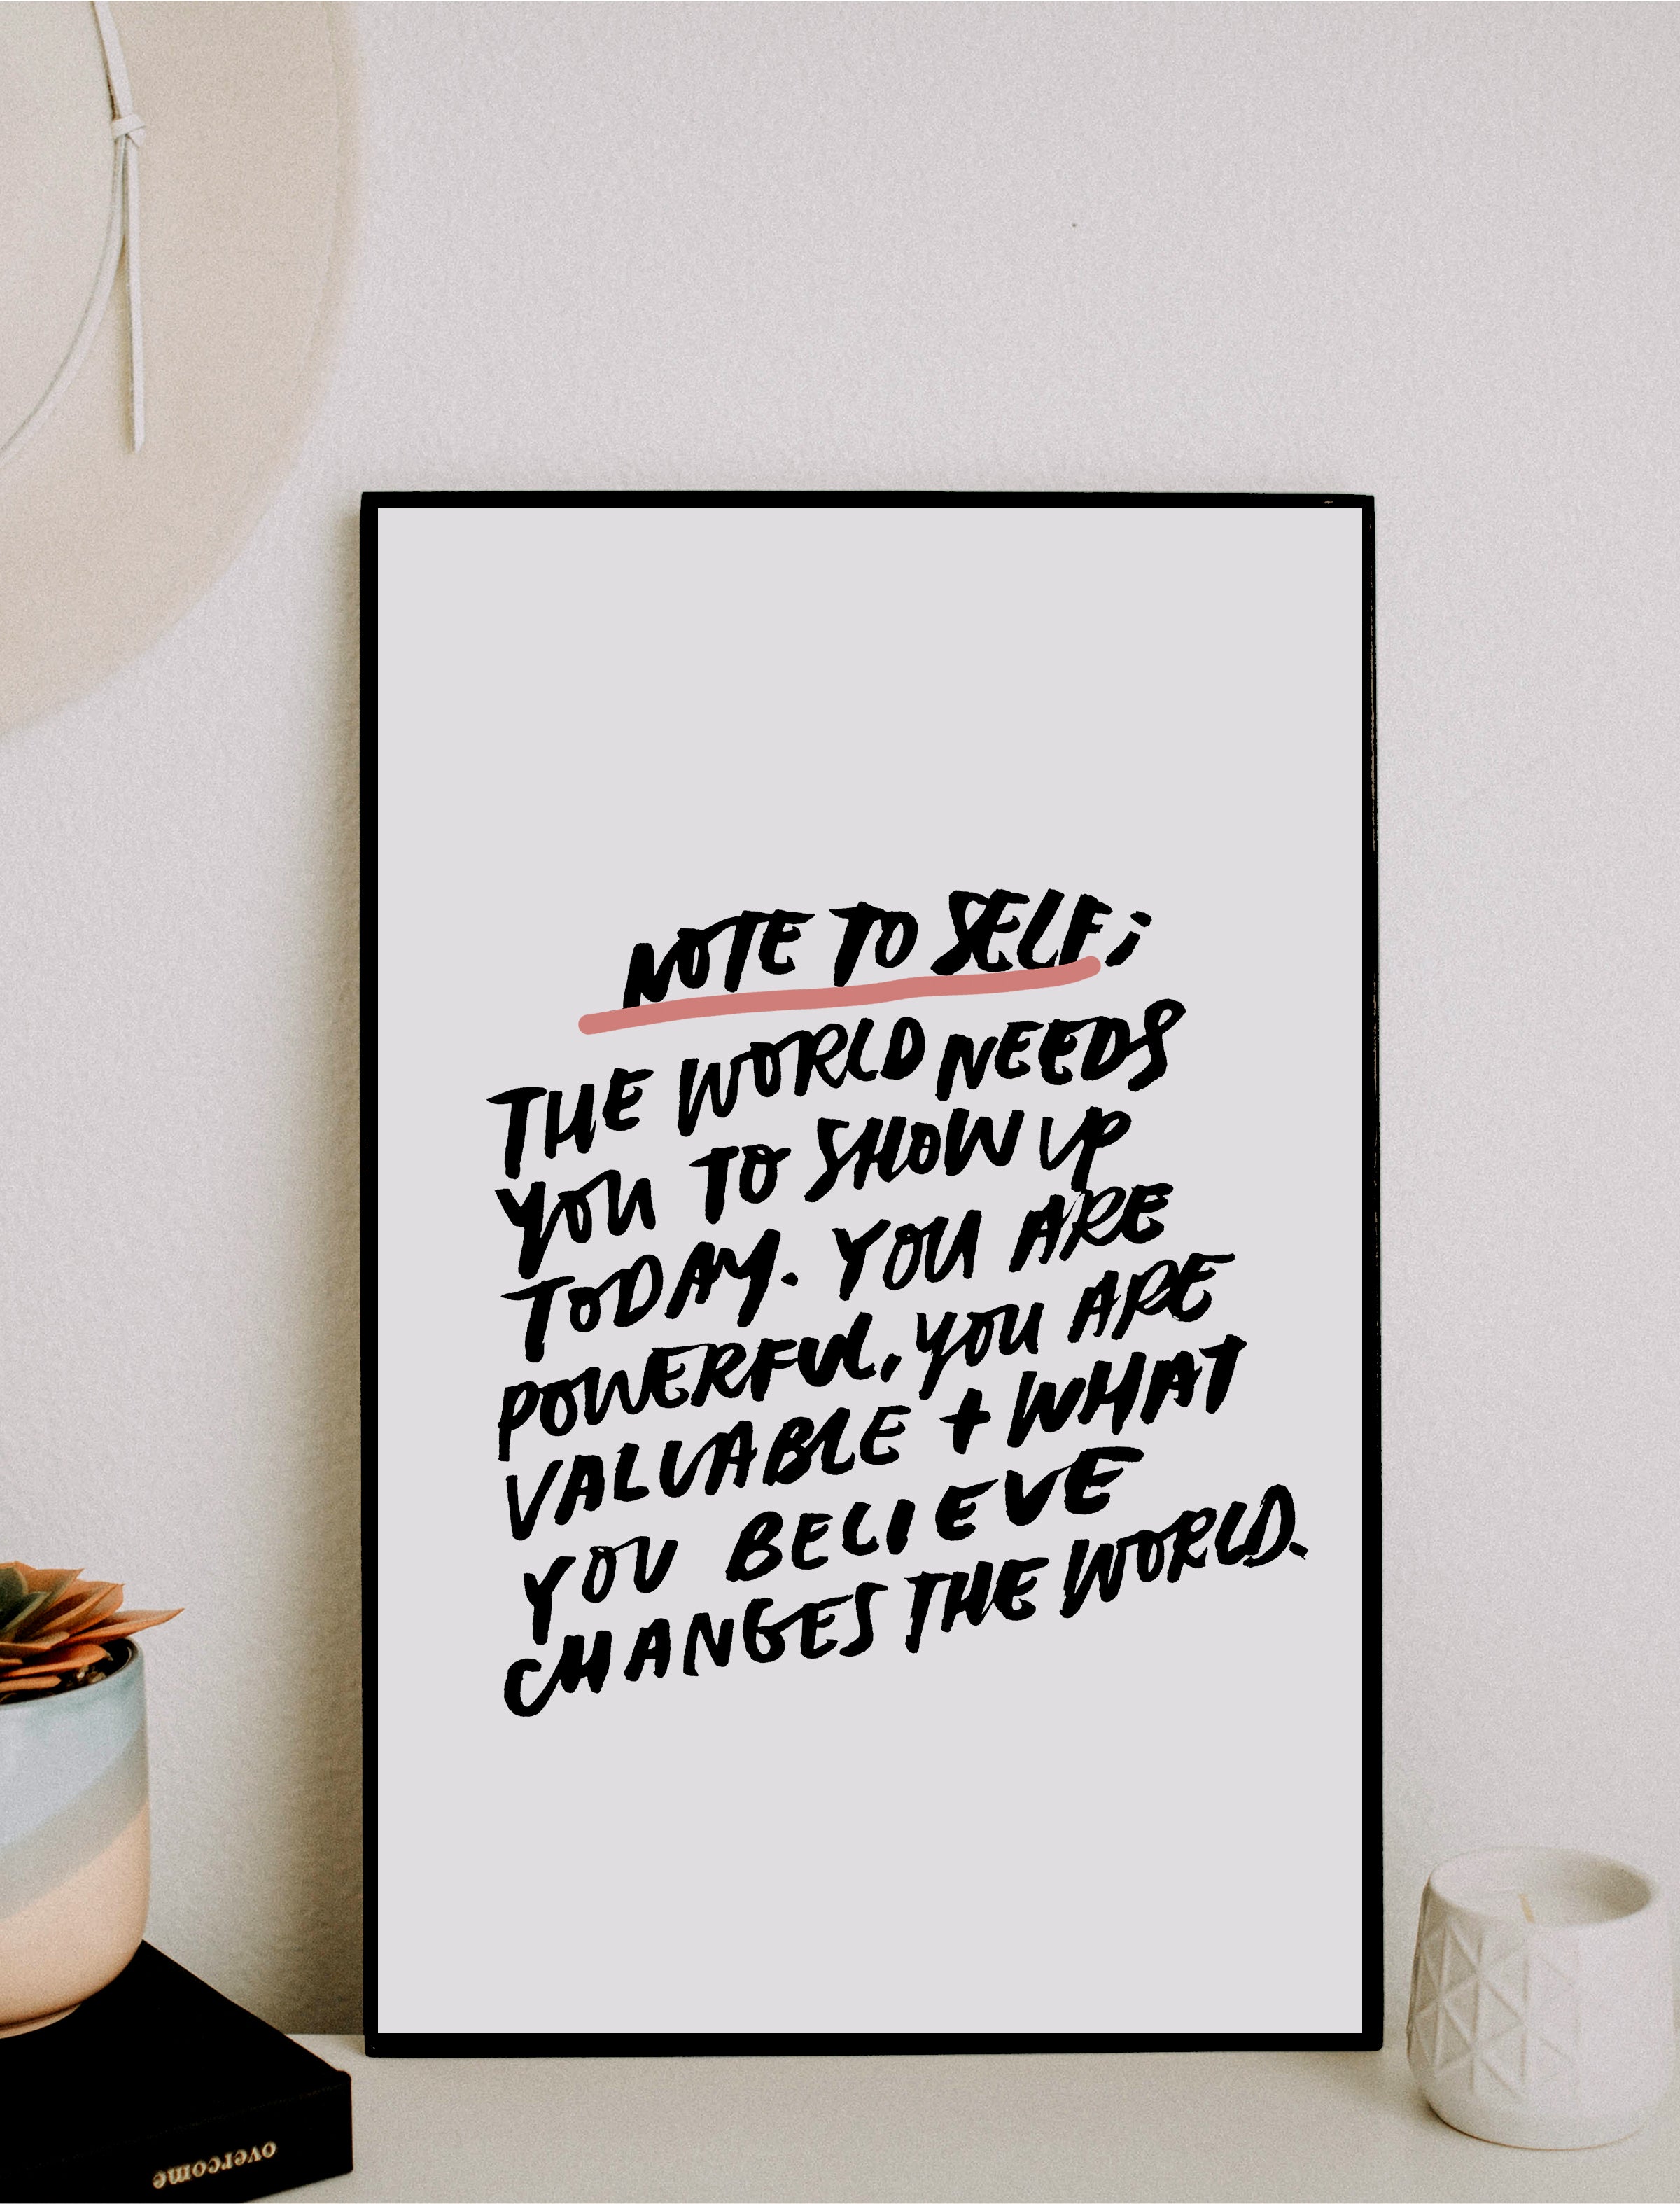 NOTE TO SELF;
THE WORLD NEEDS
YOU TO SHOW UP
TODAY. YOU ARE
POWERFUL, YOU ARE
VALUABLE + WHAT
YOU BELIEVE
CHANGES THE WORLD.
overcome